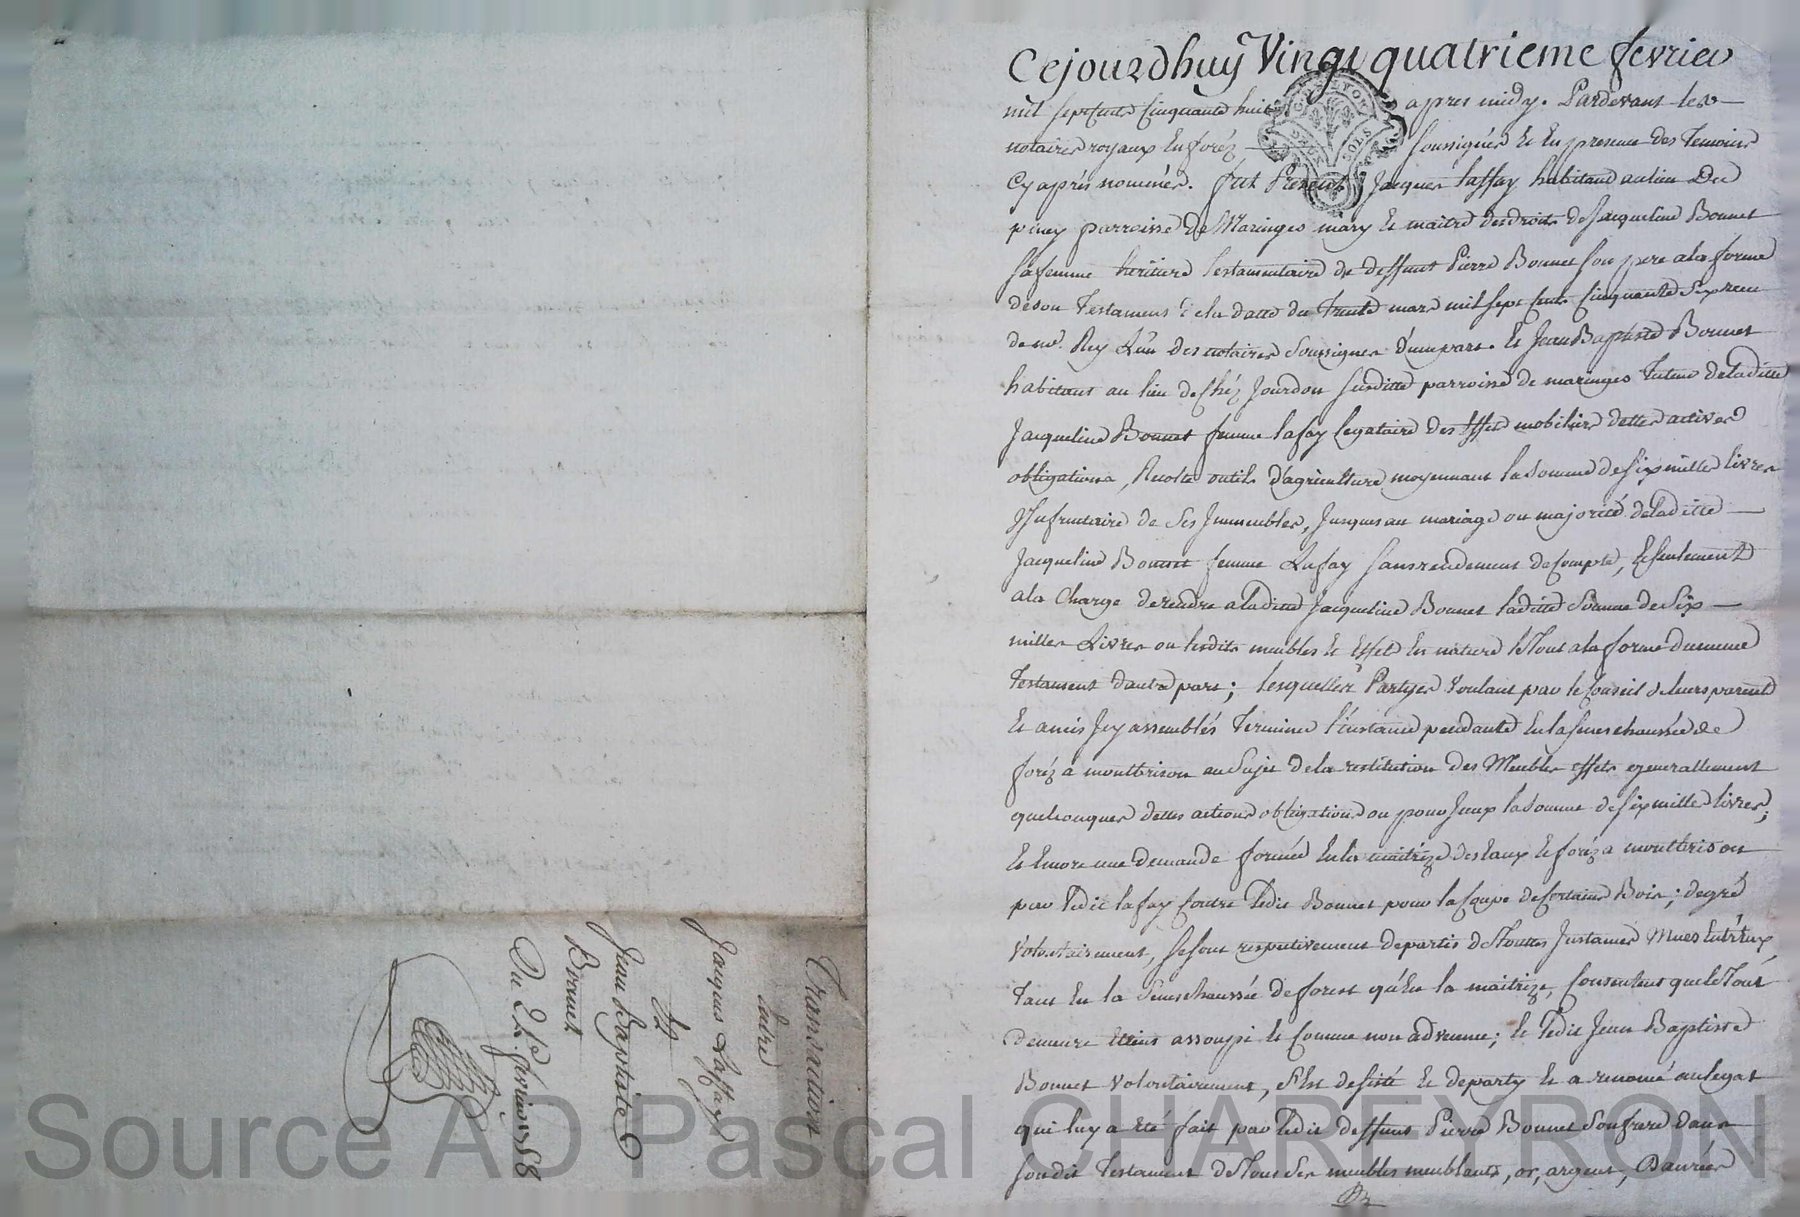 Cejourdhuy Vingt quatrieme fevrier
mil septcents cinquante huit apres midy. Pardevant les
notaires royaux en forez soussignés et en presence des temoins
cy après nommés. fut present Jacques laffay habitant au lieu du
piney parroisse de Maringes mary et maitre des droits de Jacqueline Bonnet
sa femme heritiere testamentaire de deffunt Pierre Bonnet son pere a la forme
de son testament a la datte du trente mars mil sept cents cinquante six receu
de me. Rey l'un des notaires soussignes d'une part. et Jean Baptiste Bonnet
habitant au lieu de chéz Jourdon susditte parroisse de maringes tuteur de laditte
Jacqueline Bonnet femme lafay legataire des effets mobiliers dettes actives
obligations, recolte outils d'agriculture moyennant la somme de six mille livres
usufruitaire de ses immeubles, jusques au mariage ou majorité de laditte
Jacqueline Bonnet femme Lafay sans rendement de compte, et seulement
a la charge de rendre a laditte Jacqueline Bonnet laditte somme de six
milles Livres ou lesdits meubles et effets en nature le tout a la forme du meme
testament d'autre part; lesquelles Partyes voulant par le conseil de leurs parents
et amis icy assemblés terminer l'instance pendante en la seneschaussée de
foréz a montbrison au sujet de la restitution des Meubles effets generallement
quelconques dettes actions obligations ou pour yceux la somme de six mille livres;
et encore une demande formée en la maitrize des eaux et foréz a montbrison
par ledit lafay contre ledit Bonnet pour la coupe de certains Bois; de gré
volontairement, se sont respectivement departis de touttes instances mues entr'eux
tant en la Seneschaussée de forest qu'en la maitrize, consentent que le tout
demeure éteint assoupi et comme non advenue; et ledit Jean Baptiste
Bonnet volontairement, s'est desisté et departy et a renoncé au legat
qui luy a été fait par ledit deffunt Pierre Bonnet son frere dans
son dit testament de tous ses meubles meublants, or, argent, Danrées
Transaction
entre
Jacques Laffay
et
Jean Baptiste
Bonnet
Du 24e. fevrier 1758
Source AD Pascal CHAREYRON